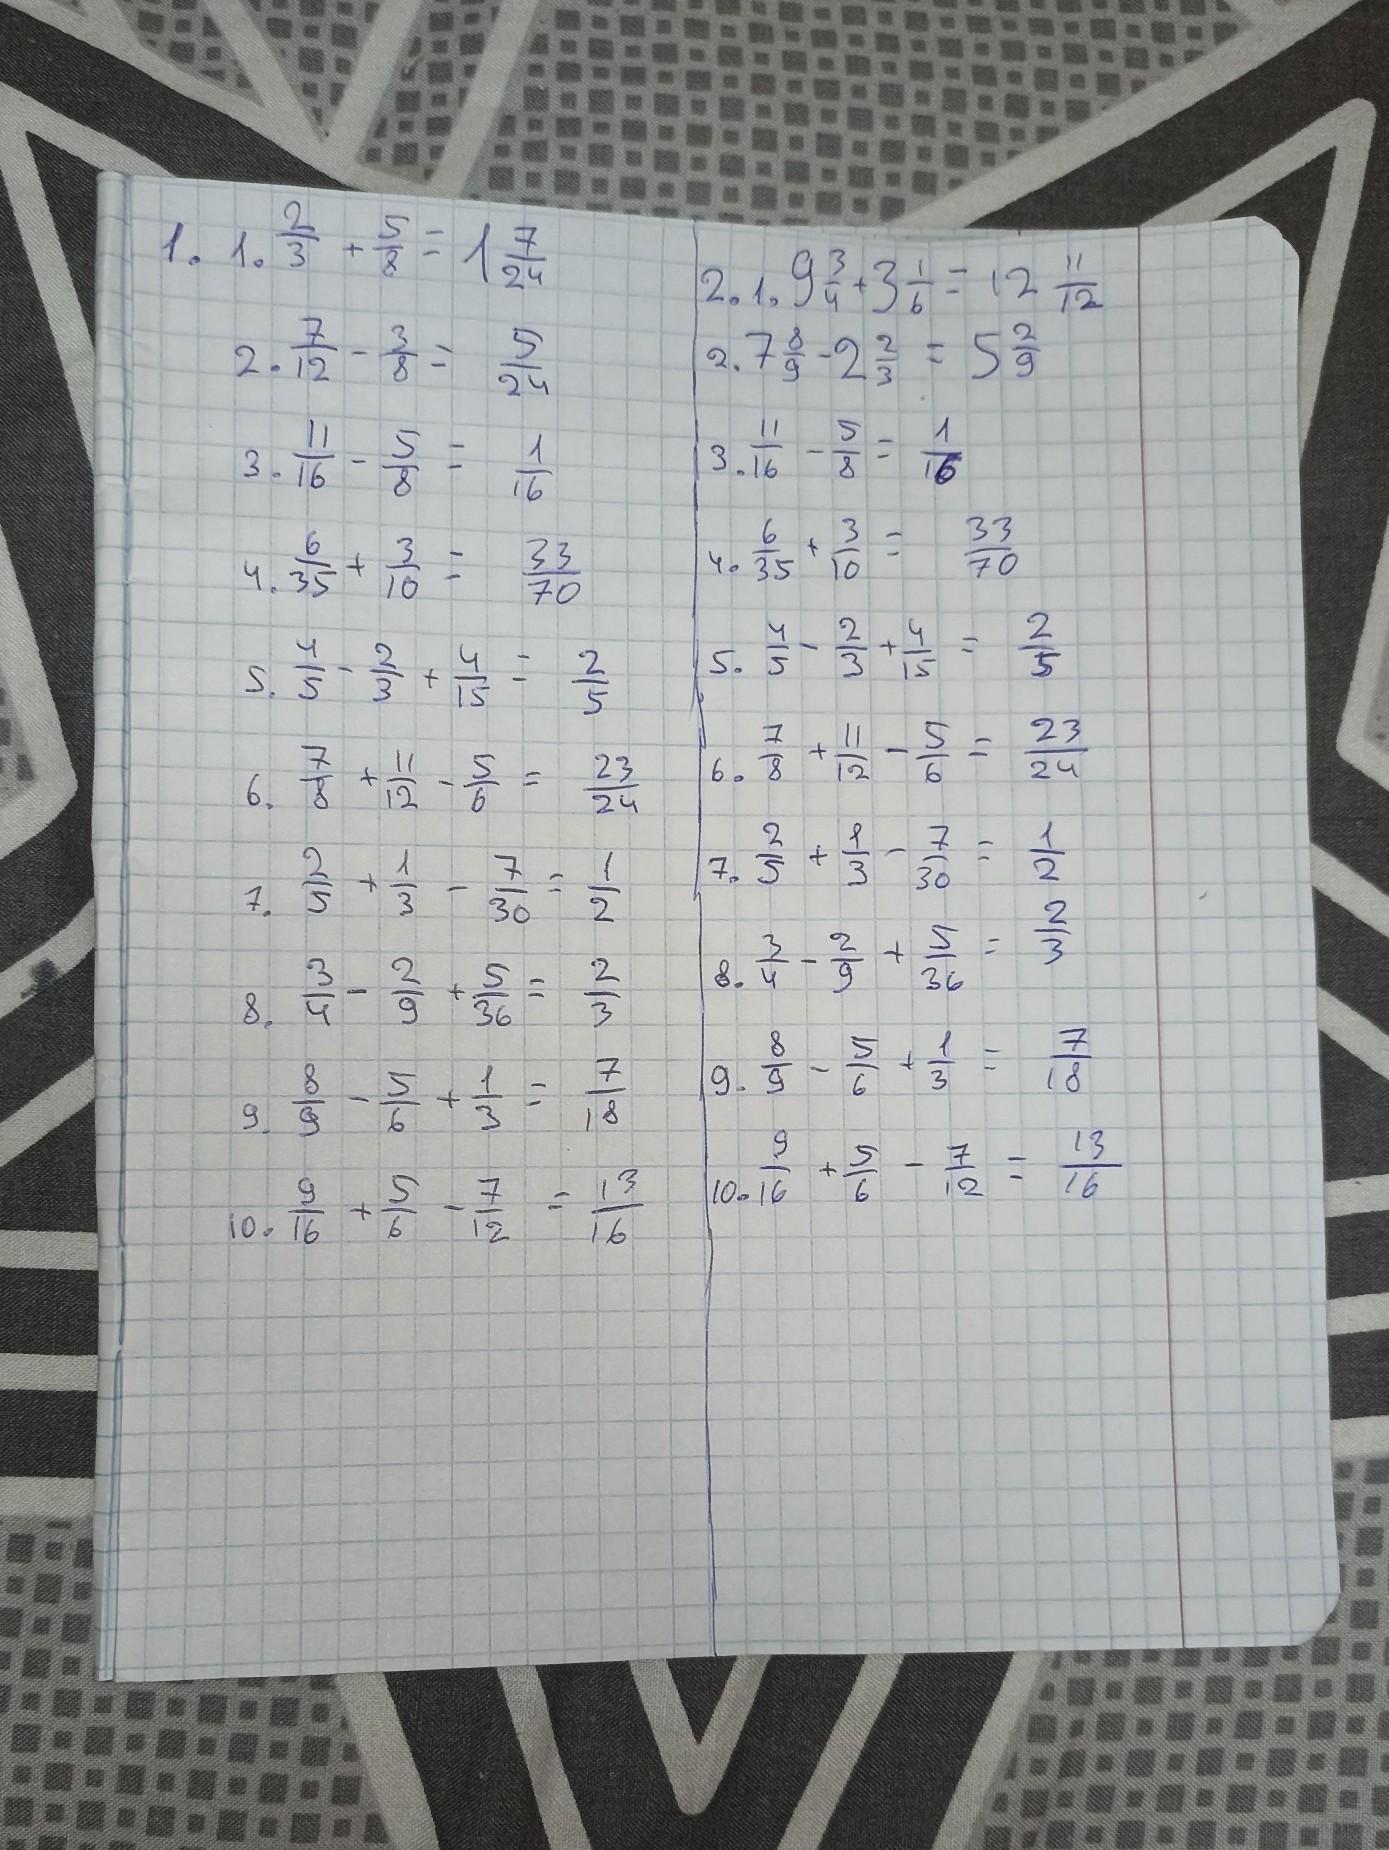 1. 1. 2/3 + 5/8 = 1 7/24
2. 7/12 - 3/8 = 5/24
3. 11/16 - 5/8 = 1/16
4. 6/35 + 3/10 = 33/70
5. 4/5 - 2/3 + 4/15 = 2/5
6. 7/8 + 11/12 - 5/6 = 23/24
7. 2/5 + 1/3 - 7/30 = 1/2
8. 3/4 - 2/9 + 5/36 = 2/3
9. 8/9 - 5/6 + 1/3 = 7/18
10. 9/16 + 5/6 - 7/12 = 13/16
2. 1. 9 3/4 + 3 1/6 = 12 11/12
2. 7 8/9 - 2 2/3 = 5 2/9
3. 11/16 - 5/8 = 1/16
4. 6/35 + 3/10 = 33/70
5. 4/5 - 2/3 + 4/15 = 2/5
6. 7/8 + 11/12 - 5/6 = 23/24
7. 2/5 + 1/3 - 7/30 = 1/2
8. 3/4 - 2/9 + 5/36 = 2/3
9. 8/9 - 5/6 + 1/3 = 7/18
10. 9/16 + 5/6 - 7/12 = 13/16